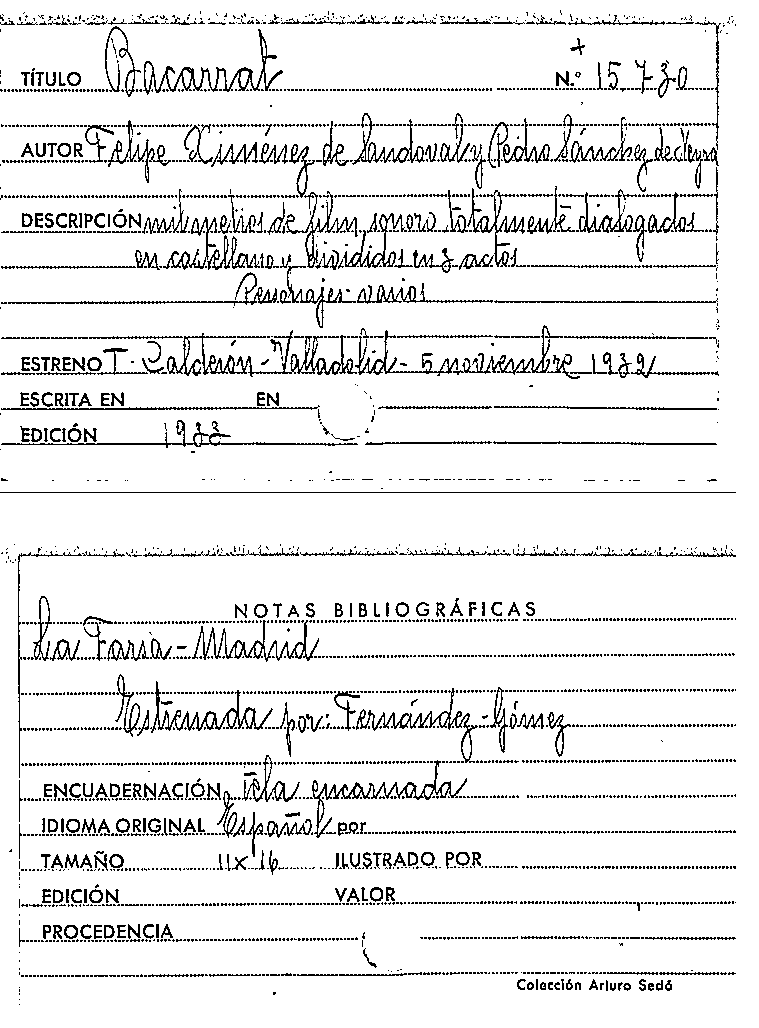 +
TÍTULO Bacarrat N.º 15.730
AUTOR Felipe Ximénez de Sandoval y Pedro Sánchez de Neyra
DESCRIPCIÓN mil metros de film sonoro totalmente dialogados
en castellano y divididos en 3 actos
Personajes varios
ESTRENO T. Calderón - Valladolid - 5 noviembre 1932
ESCRITA EN EN
EDICIÓN 1933
NOTAS BIBLIOGRÁFICAS
La Farsa - Madrid
Estrenada por: Fernández-Gómez
ENCUADERNACIÓN tela encarnada
IDIOMA ORIGINAL Español por
TAMAÑO 11x16 ILUSTRADO POR
EDICIÓN VALOR
PROCEDENCIA
Colección Arturo Sedó